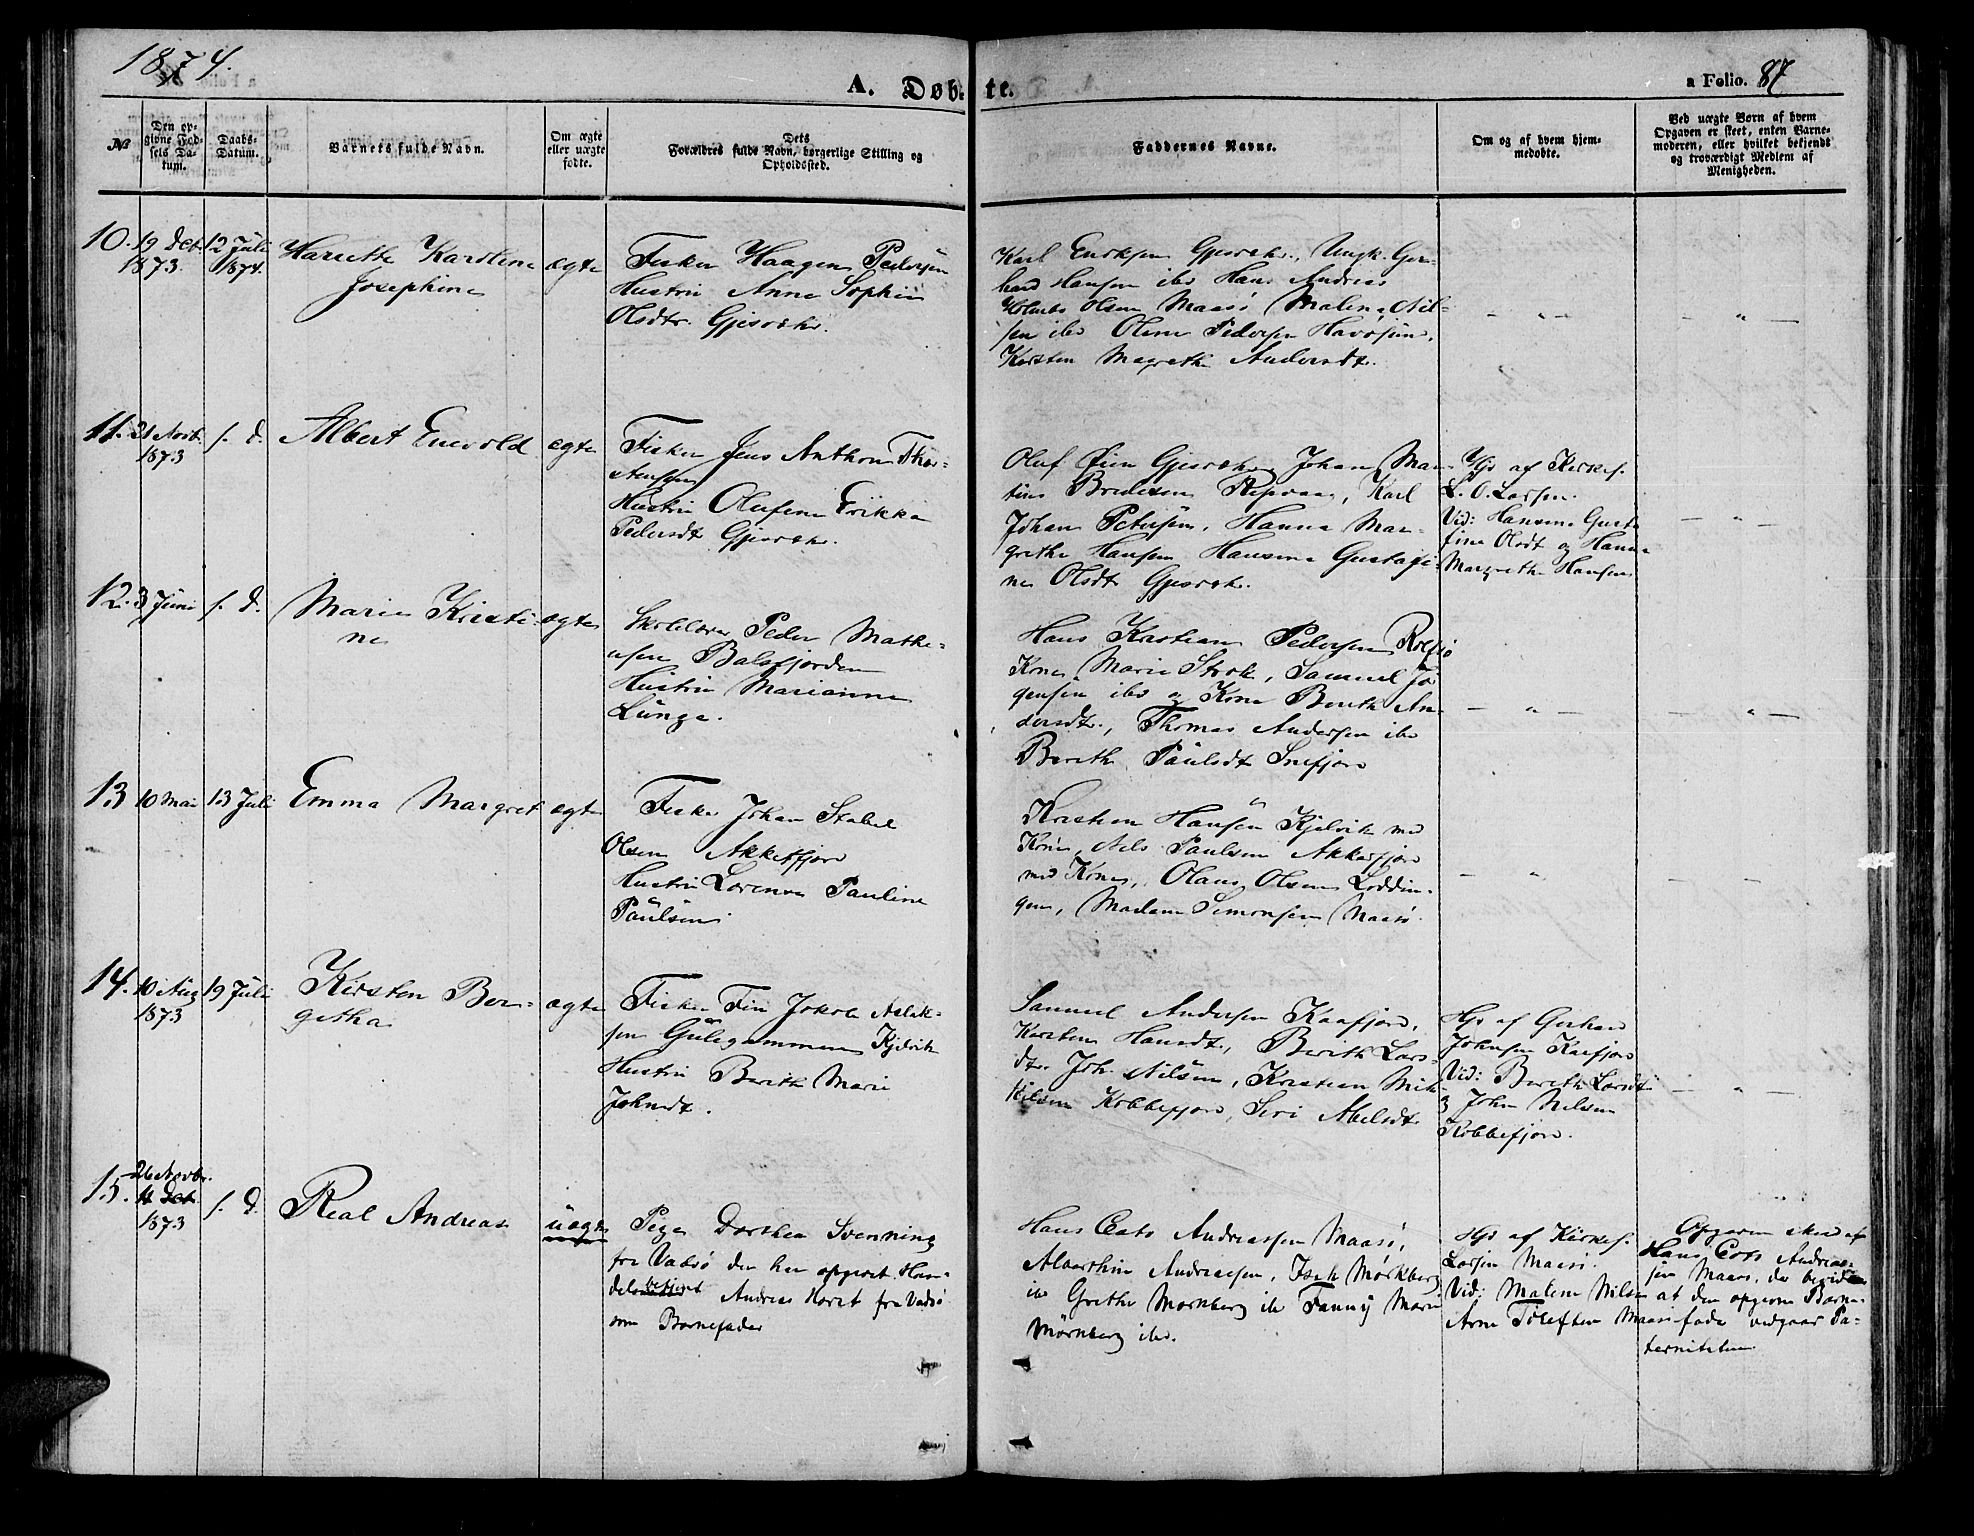 1874.
A. Døbte.
a Folio. 87
No
Den opgivne Fødsels Datum.
Daabs-Datum.
Barnets fulde Navn.
Om ægte eller uægte fødte.
Dets Forældres fulde Navn, borgerlige Stilling og Opholdssted.
Faddernes Navne.
Om og af hvem hjemmedøbte.
Ved uægte Børn af hvem Opgaven er skeet, enten Barnemoderen, eller hvilket bekjendt og troværdigt Medlem af Menigheden.
10. 19 Oct. 1873.
12 Juli 1874.
Hariette Karoline
Josephine
ægte
Fisker Haagen Pedersen
Hustru Anne Sophie
Olsdtr. Gjesvær.
Karl Eriksen Gjesvær., Ungk. Ger-
hard Hansen ibd Hans Andreas
Olsen Maasö, Malena Nil-
sen ibd Olena Pedersen Havösund.
Karsten Magrethe Andersdt.
— " —
— " —
11. 21 Novb. 1873
s. d.
Albert Enevold
ægte
Fisker Jens Anthon Thor-
stensen
Hustru Olufine Erikka
Pedersdt Gjesvær.
Oluf Gjesvær, Johan Mar-
tin Bredesen Repvaag, Karl
Johan Petersen, Hanna Mar-
grethe Hansen Hansine Gustafi-
ne Olsdt Gjesvær.
Hjd af Kirkes.
L. O. Larsen.
Vid: Hansine Gusta
fine Olsdt og Hanna
Margrethe Hansen
— " —
12. 3 Juni
s. d.
Marie Kristi-
ne
ægte
Skolelærer Peder Mathi-
esen Balsfjorden
Hustru Marianne
Lunge.
Hans Kristian Pedersen Rolfsö
Kone Marie Strøk, Samuel Jör
gensen ibd og Kone Berith An-
dersdtr., Thomas Andersen ibd
Berith Paulsdt Snefjord
— " —
— " —
13 10 Mai
13 Juli
Emma Margret
ægte
Fisker Johan Stabel
Olsen Akkarfjord
Hustru Lorense Pauline
Paulsen.
Kristian Hansen Kjelvik med
Kone, Nils Paulsen Akkarfjord
med Kone, Olaus Olsen Loddin-
gen, Madam Simonsen Maasö.
— " —
— —
14. 10 Aug 1873
19 Juli
Kirsten Ber-
getha
ægte
Fisker Fin Jakob Aslak-
sen Gulgammen Kjelvik
Hustru Berith Marie
Johnsdt.
Samuel Andersen Kaafjord,
Karsten Hansdt, Berith Lars-
dtr. Joh. Nilsen, Kristian Mik
Nilsen Kobbefjord, Siri Abelsdt
Hjd af Gerhard
Johnsen Kaafjord
Vid: Berith Larsdt
og John Nilsen
Kobbefjord.
— " —
15. 26 Novb. 11 Oct. 1873
s. d.
Real Andreas
uægte
Pige Dorthea Svenning
fra Vadsö der har opgivet Han-
delsbetjent Andreas Horst fra Vadsö
som Barnefader
Hans Cato Andreassen Maasö,
Albertine Andreassen, Mørkberg
ib Grethe Mørnberg ib Fanny Marie
Mørnberg ibd.
Hjd af Kirkes.
Larsen Maasö.
Vid: Malene Nilsen
Arne Tollefsen Maasö
Opgaven skeed af
Hans Cato Andreas-
sen Maasö, der bevidner
at den opgivne Barne-
fader vedgaar Pa-
terniteten